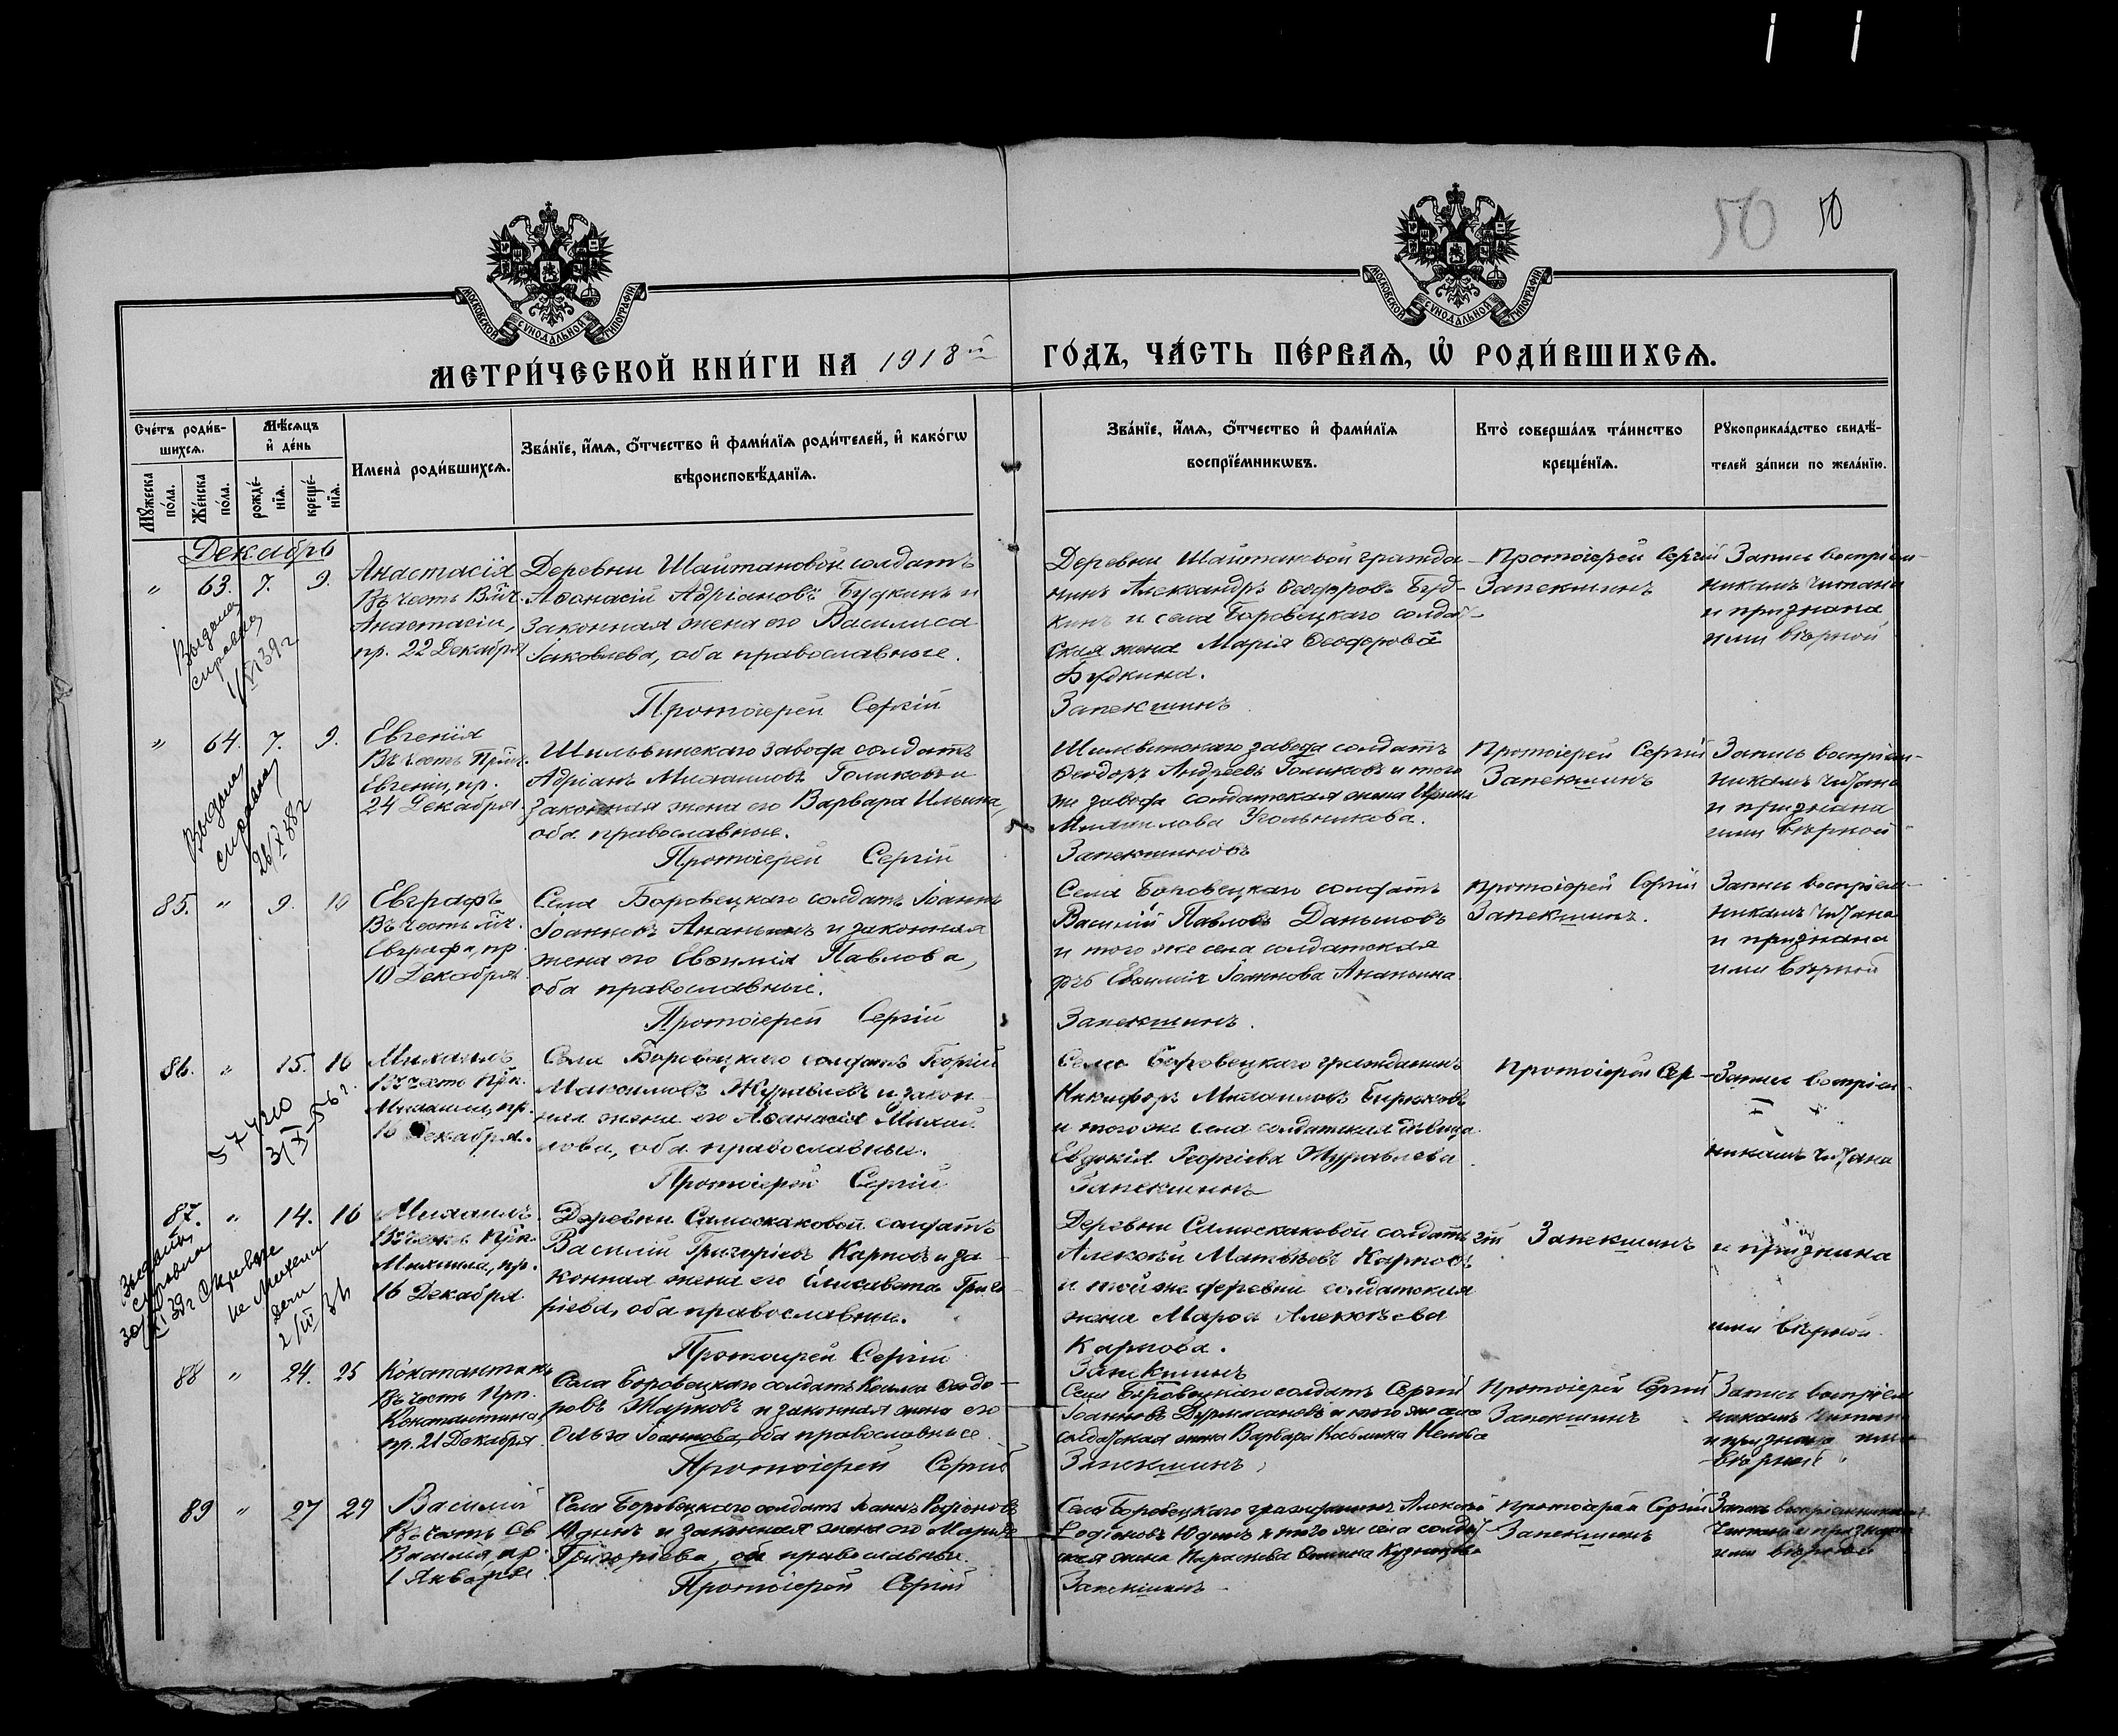 50 50
МОСКОВСКОЙ СУНОДАЛЬНОЙ ТИПОГРАФІИ
МОСКОВСКОЙ СУНОДАЛЬНОЙ ТИПОГРАФІИ
МЕТРИ́ЧЕСКОЙ КНИ́ГИ НА 1918й ГО́ДЪ, ЧА́СТЬ ПЕ́РВАѦ, Ѡ҆ РОДИ́ВШИХСѦ.
Счéтъ роди́в-
шихсѧ.
Мꙋ́жеска по́ла.
Же́нска по́ла.
Мѣ́сѧцъ
и҆ де́нь
рожде́-
нїѧ.
креще́-
нїѧ.
Имена̀ роди́вшихсѧ.
Зва́нїе, и҆́мѧ, ѻ҆́тчество и҆ фами́лїѧ роди́телей, и҆ како́гѡ
вѣроисповѣ́данїѧ.
Зва́нїе, и҆́мѧ, ѻ҆́тчество и҆ фами́лїѧ
воспрїе́мникѡвъ.
Кто̀ соверша́лъ та́инство
креще́нїѧ.
Рꙋкоприкла́дство свидѣ́-
телей за́писи по жела́нїю.
Декабрь
" 63. 7. 9.
Анастасія
Въ честь Вмч.
Анастасіи,
пр. 22 Декабря
Деревни Шайтановой солдатъ
Аѳонасій Адріановъ Будкинъ и
законная жена его Василиса
Іаковлева, оба православные.
Протоіерей Сергій
Деревни Шайтановой гражда-
нинъ Александръ Ѳеодоровъ Буд-
кинъ и села Боровецкаго солдат-
ская жена Марія Ѳеодорова
Будкина.
Запекшинъ
Протоіерей Сергій
Запекшинъ
Запись воспріем-
никамъ читана
и признана
ими вѣрной
Выдана
справка
" 64. 7. 9.
Евгенія
Въ честь Прмч.
Евгеніи, пр.
24 Декабря.
Шильвинскаго завода солдатъ
Адріанъ Михаиловъ Голиковъ и
законная жена его Варвара Ильина,
оба православные.
Протоіерей Сергій
Шильвинскаго завода солдатъ
Ѳеодоръ Андреевъ Голиковъ и того
же завода солдатская жена Ирина
Михаилова Угольникова.
Запекшинъ
Протоіерей Сергій
Запекшинъ
Запись воспріем-
никамъ читана
и признана
ими вѣрной
Выдана
справка
85. " 9. 10
Евграфъ
Въ честь мч.
Евграфа, пр
10 Декабря
Села Боровецкаго солдатъ Іоаннъ
Іоанновъ Ананьинъ и законная
жена его Евѳимія Павлова,
оба православные.
Протоіерей Сергій
Села Боровецкаго солдатъ
Василій Павловъ Даньшовъ
и того же села солдатская
дчь Евѳимія Іоаннова Ананьина.
Запекшинъ.
Протоіерей Сергій
Запекшинъ.
Запись воспріем-
никамъ читана
и признана
ими вѣрной
86. " 15. 16
Михаилъ
Въ честь Прк.
Михаила, пр.
16 Декабря.
Села Боровецкаго солдатъ Георгій
Максимовъ Журавлевъ и закон-
ная жена его Аѳанасія Михаи-
лова, оба православные.
Протоіерей Сергій
Села Боровецкаго гражданинъ
Никифоръ Михаиловъ Бирюковъ
и того же села солдатская дѣвица
Евдокія Георгіева Журавлева
Запекшинъ
Протоіерей Сер-
Запись воспріем-
никамъ читана
87. " 14. 16
Михаилъ
Въ честь Прк.
Михаила, пр.
16 Декабря
Деревни Самоскаковой солдатъ
Василій Григорьевъ Карповъ и за-
конная жена его Елисавета Григо-
ріева, оба православные.
Протоіерей Сергій
Деревни Самоскаковой солдатъ
Алексѣй Матвѣевъ Карповъ
и той же деревни солдатская
жена Марѳа Алексѣева
Карпова.
Запекшинъ
гій Запекшинъ
и признана
ими вѣрной.
88 " 24. 25
Константинъ
Въ честь Прп.
Константина,
пр. 21 Декабря.
Села Боровецкаго солдатъ Косьма Ѳеодо-
ровъ Жарковъ и законная жена его
Ольга Іоаннова, оба православные.
Протоіерей Сергій
Села Боровецкаго солдатъ Сергій
солдатская жена Варвара Косьмина
Запекшинъ
Протоіерей Сергій
Запекшинъ
Запись воспріем
никамъ читана
и признана ими
вѣрной
89 " 27 29
Василій
Въ честь Св
Василія, пр.
1 Января
Села Боровецкаго солдатъ Іоаннъ Родіоновъ
Юдинъ и законная жена его Марія
Григоріева, оба православные.
Протоіерей Сергій
Села Боровецкаго гражданинъ Алексѣй
Родіоновъ Юдинъ и того же села солдат
ская жена Параскева Кузнецова
Запекшинъ
Протоіерей Сергій
Запекшинъ
Запись воспріемникамъ
читана и признана
ими вѣрной